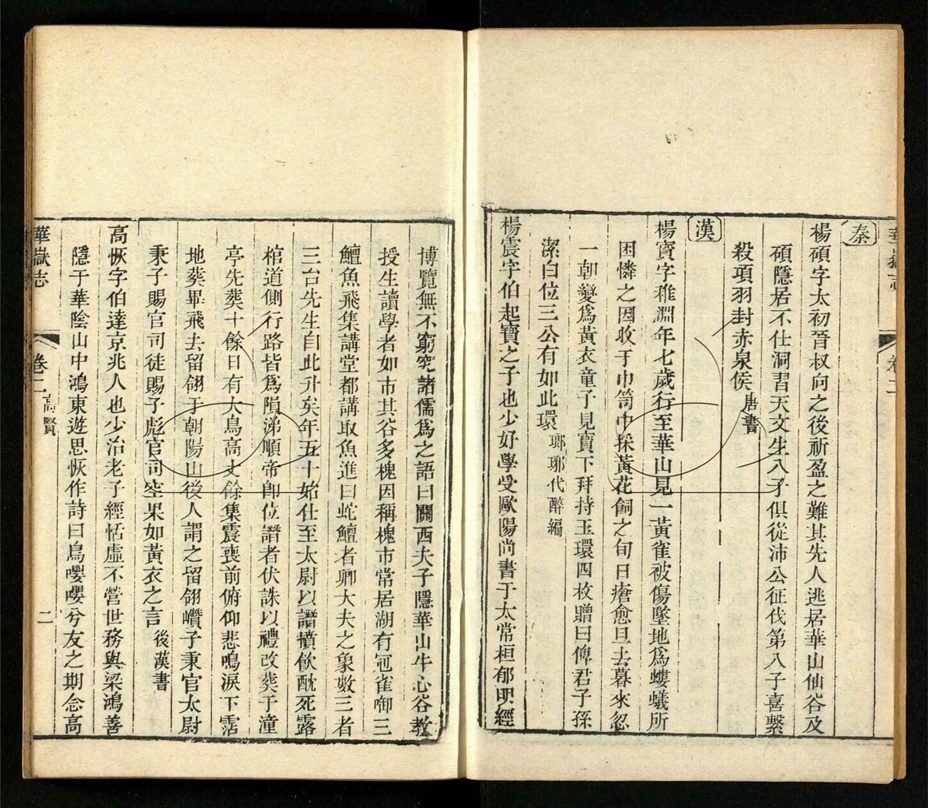 華嶽志
卷二
秦
楊碩字太初晉叔向之後祈盈之難其先人逃居華山仙谷及
碩隱居不仕洞習天文生八子俱從沛公征伐第八子喜繫
殺項羽封赤泉侯唐書
漢
楊寶字稚淵年七歲行至華山見一黃雀被傷墜地爲螻蟻所
困憐之因收于巾笥中採黃花飼之旬日瘡愈旦去暮來忽
一朝變爲黃衣童子見寶下拜持玉環四枚贈曰俾君子孫
潔白位三公有如此環瑯琊代醉編
楊震字伯起寶之子也少好學受歐陽尚書于太常桓郁明經
博覽無不窮究諸儒爲之語曰關西夫子隱華山牛心谷教
授生讀學者如市其谷多槐因稱槐市常居湖有冠雀啣三
鱣魚飛集講堂都講取魚進曰蛇鱣者卿大夫之象數三者
三台先生自此升矣年五十始仕至太尉以譖憤飲酖死露
棺道側行路皆爲隕涕順帝卽位譖者伏誅以禮改葬于潼
亭先葬十餘日有大鳥高丈餘集震喪前俯仰悲鳴淚下霑
地葬畢飛去留翎于朝陽山後人謂之留翎巑子秉官太尉
秉子賜官司徒賜子彪官司空果如黃衣之言後漢書
高恢字伯達京兆人也少治老子經恬虛不營世務與梁鴻善
隱于華陰山中鴻東遊思恢作詩曰鳥嚶嚶兮友之期念高
華嶽志
卷二
高賢
二